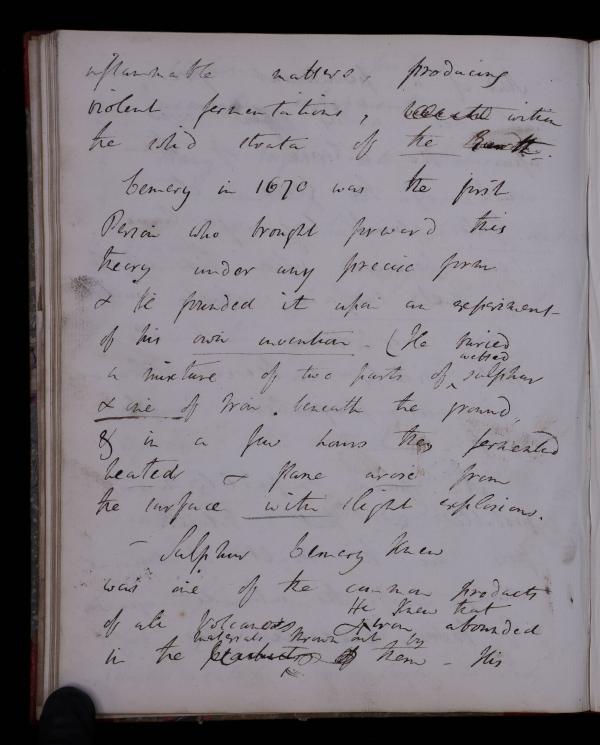 inflammable matters, producing
violent fermentations, within
the solid strata of the Earth.
Lemery in 1670 was the first
Person who brought forward this
theory under any precise form
& He founded it upon an experiment
of his own invention - (He buried
a mixture of two parts of wetted sulphur
& one of Iron. beneath the ground,
& in a few hours they fermented
heated & flame arose from
the surface with slight explosions.
- Sulphur Lemery knew
was one of the common products
of all Volcanoes He knew that Iron abounded
in the materials thrown out by them - His